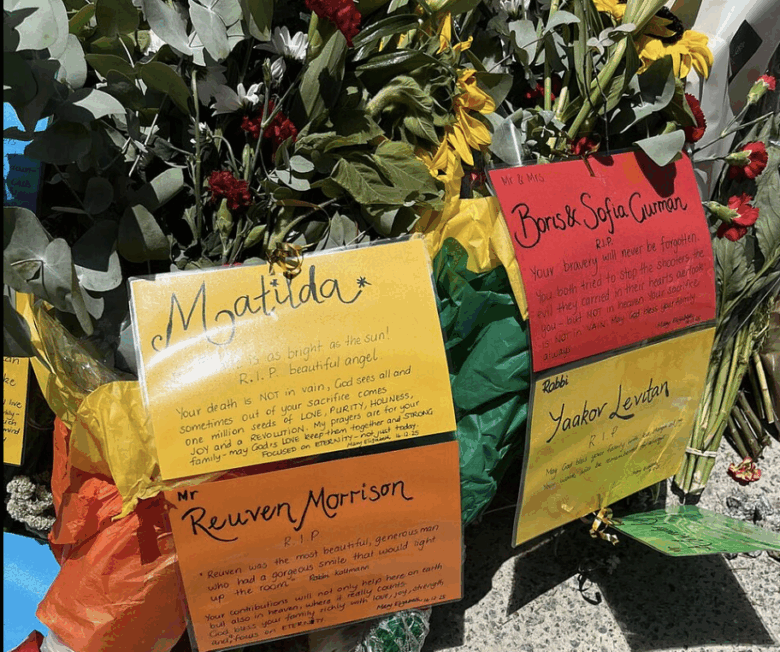 Matilda*
is as bright as the sun!
R.I.P. beautiful angel
Your death is NOT in vain, God sees all and
sometimes out of your sacrifice comes
one million seeds of LOVE, PURITY, HOLINESS,
JOY and a REVOLUTION. My prayers are for your
family - may God's LOVE keep them together and STRONG
FOCUSED on ETERNITY - not just today.
Mary Elizabeth 16.12.25
Mr
Reuven Morrison
R.I.P
"Reuven was the most beautiful, generous man
who had a gorgeous smile that would light
up the room." Rabbi
Your contributions will not only help here on earth
but also in heaven, where it really counts
God bless your family richly with love, joy, strength
and focus on ETERNITY
Mary Elizabeth 16.12.25
Mr & Mrs
Boris & Sofia Gurman
R.I.P.
Your bravery will never be forgotten.
You both tried to stop the shooters the
evil they carried in their hearts
you - but NOT in heaven your sacrifice
is NOT in VAIN. May God bless your family
always
Rabbi
Yaakov Levitan
R I P
May God bless your family with